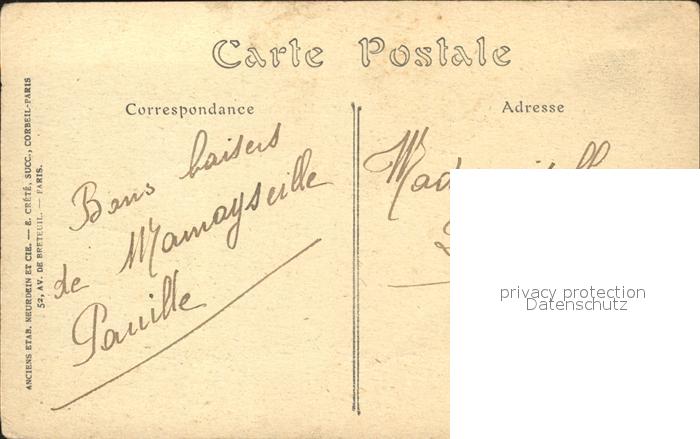 Carte Postale
Correspondance
Adresse
Bons baisers
de
ANCIENS ETAB. NEURDEIN ET CIE. — E. CRÉTÉ, SUCC., CORBEIL-PARIS
52, AV. DE BRETEUIL. — PARIS.
privacy protection
Datenschutz